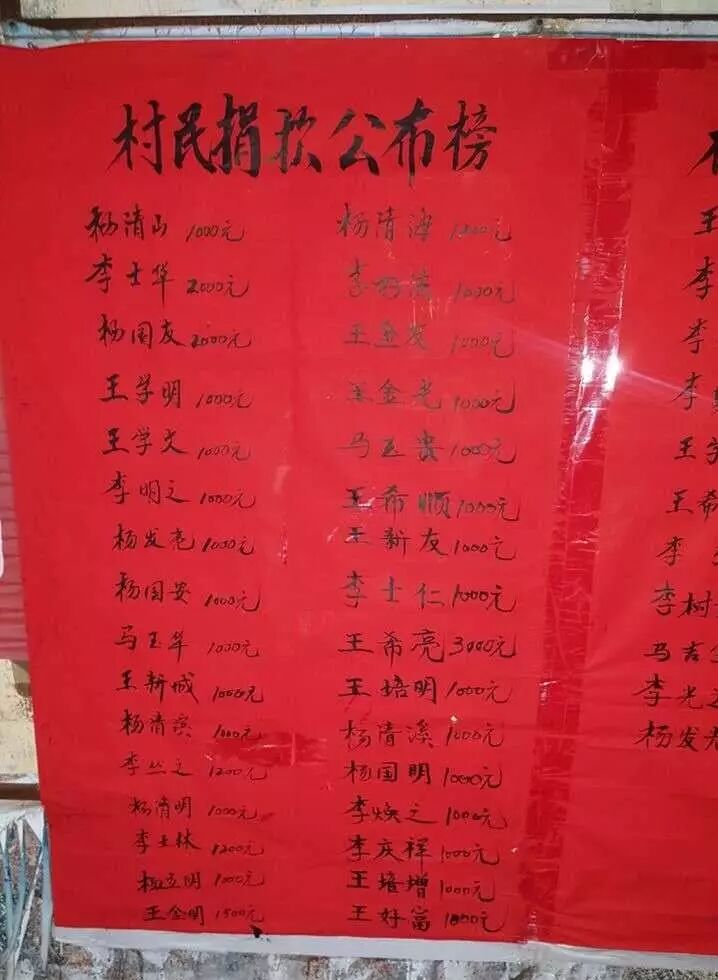 村民捐款公布榜
杨清山 1000元 杨清海 1000元
李士华 2000元 李好清 1000元
杨国友 2000元 王金发 1000元
王学明 1000元 王金光 1000元
王学文 1000元 马玉贵 1000元
李明之 1000元 王希顺 1000元
杨发亮 1000元 王新友 1000元
杨国安 1000元 李士仁 1000元
马玉华 1000元 王希亮 3000元
王新城 1000元 王培明 1000元
杨清滨 1000元 杨清溪 1000元
李丛之 1200元 杨国明 1000元
杨清明 1000元 李焕之 1000元
李士林 1200元 李庆祥 1000元
杨立明 1000元 王培增 1000元
王金明 1500元 王好富 1000元
王
李
李
李
王
王希
李
李树
马吉
李光
杨发